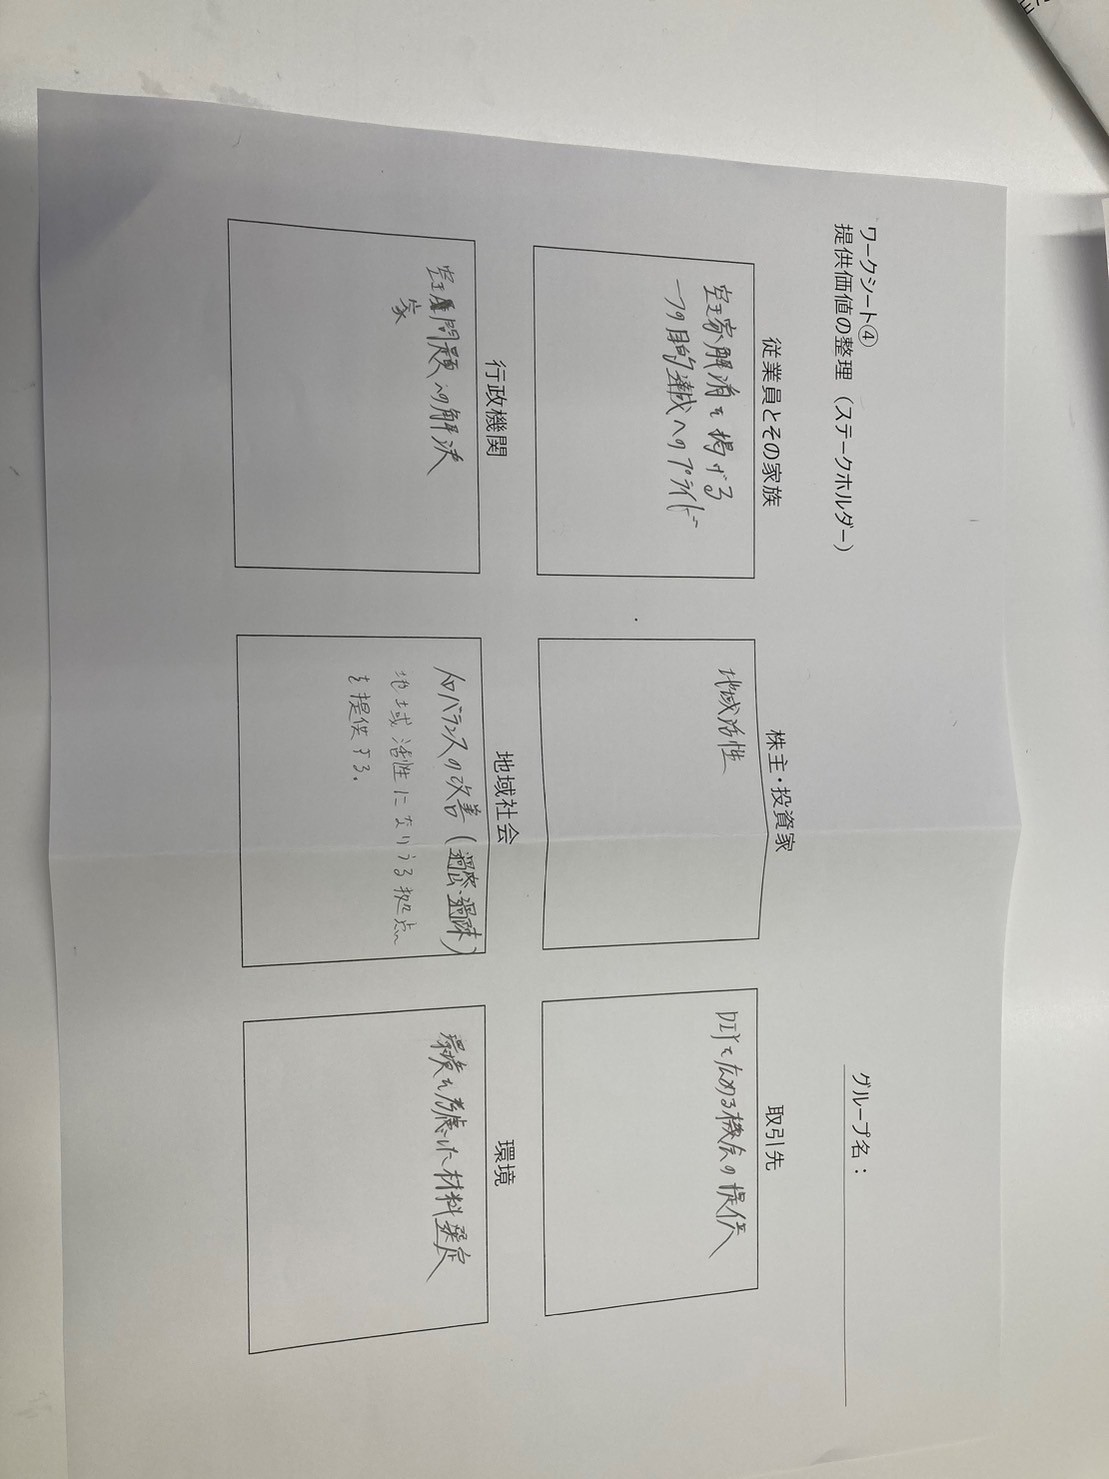 ワークシート④
提供価値の整理（ステークホルダー）
グループ名：
従業員とその家族
空家解消を掲げる
一つの目的達成へのプライド
株主・投資家
地域活性
取引先
DIYを広める機会の提供
行政機関
空家問題の解決
地域社会
人口バランスの改善（過密・過疎）
地域活性になりうる拠点
を提供する。
環境
環境を考慮した材料選定